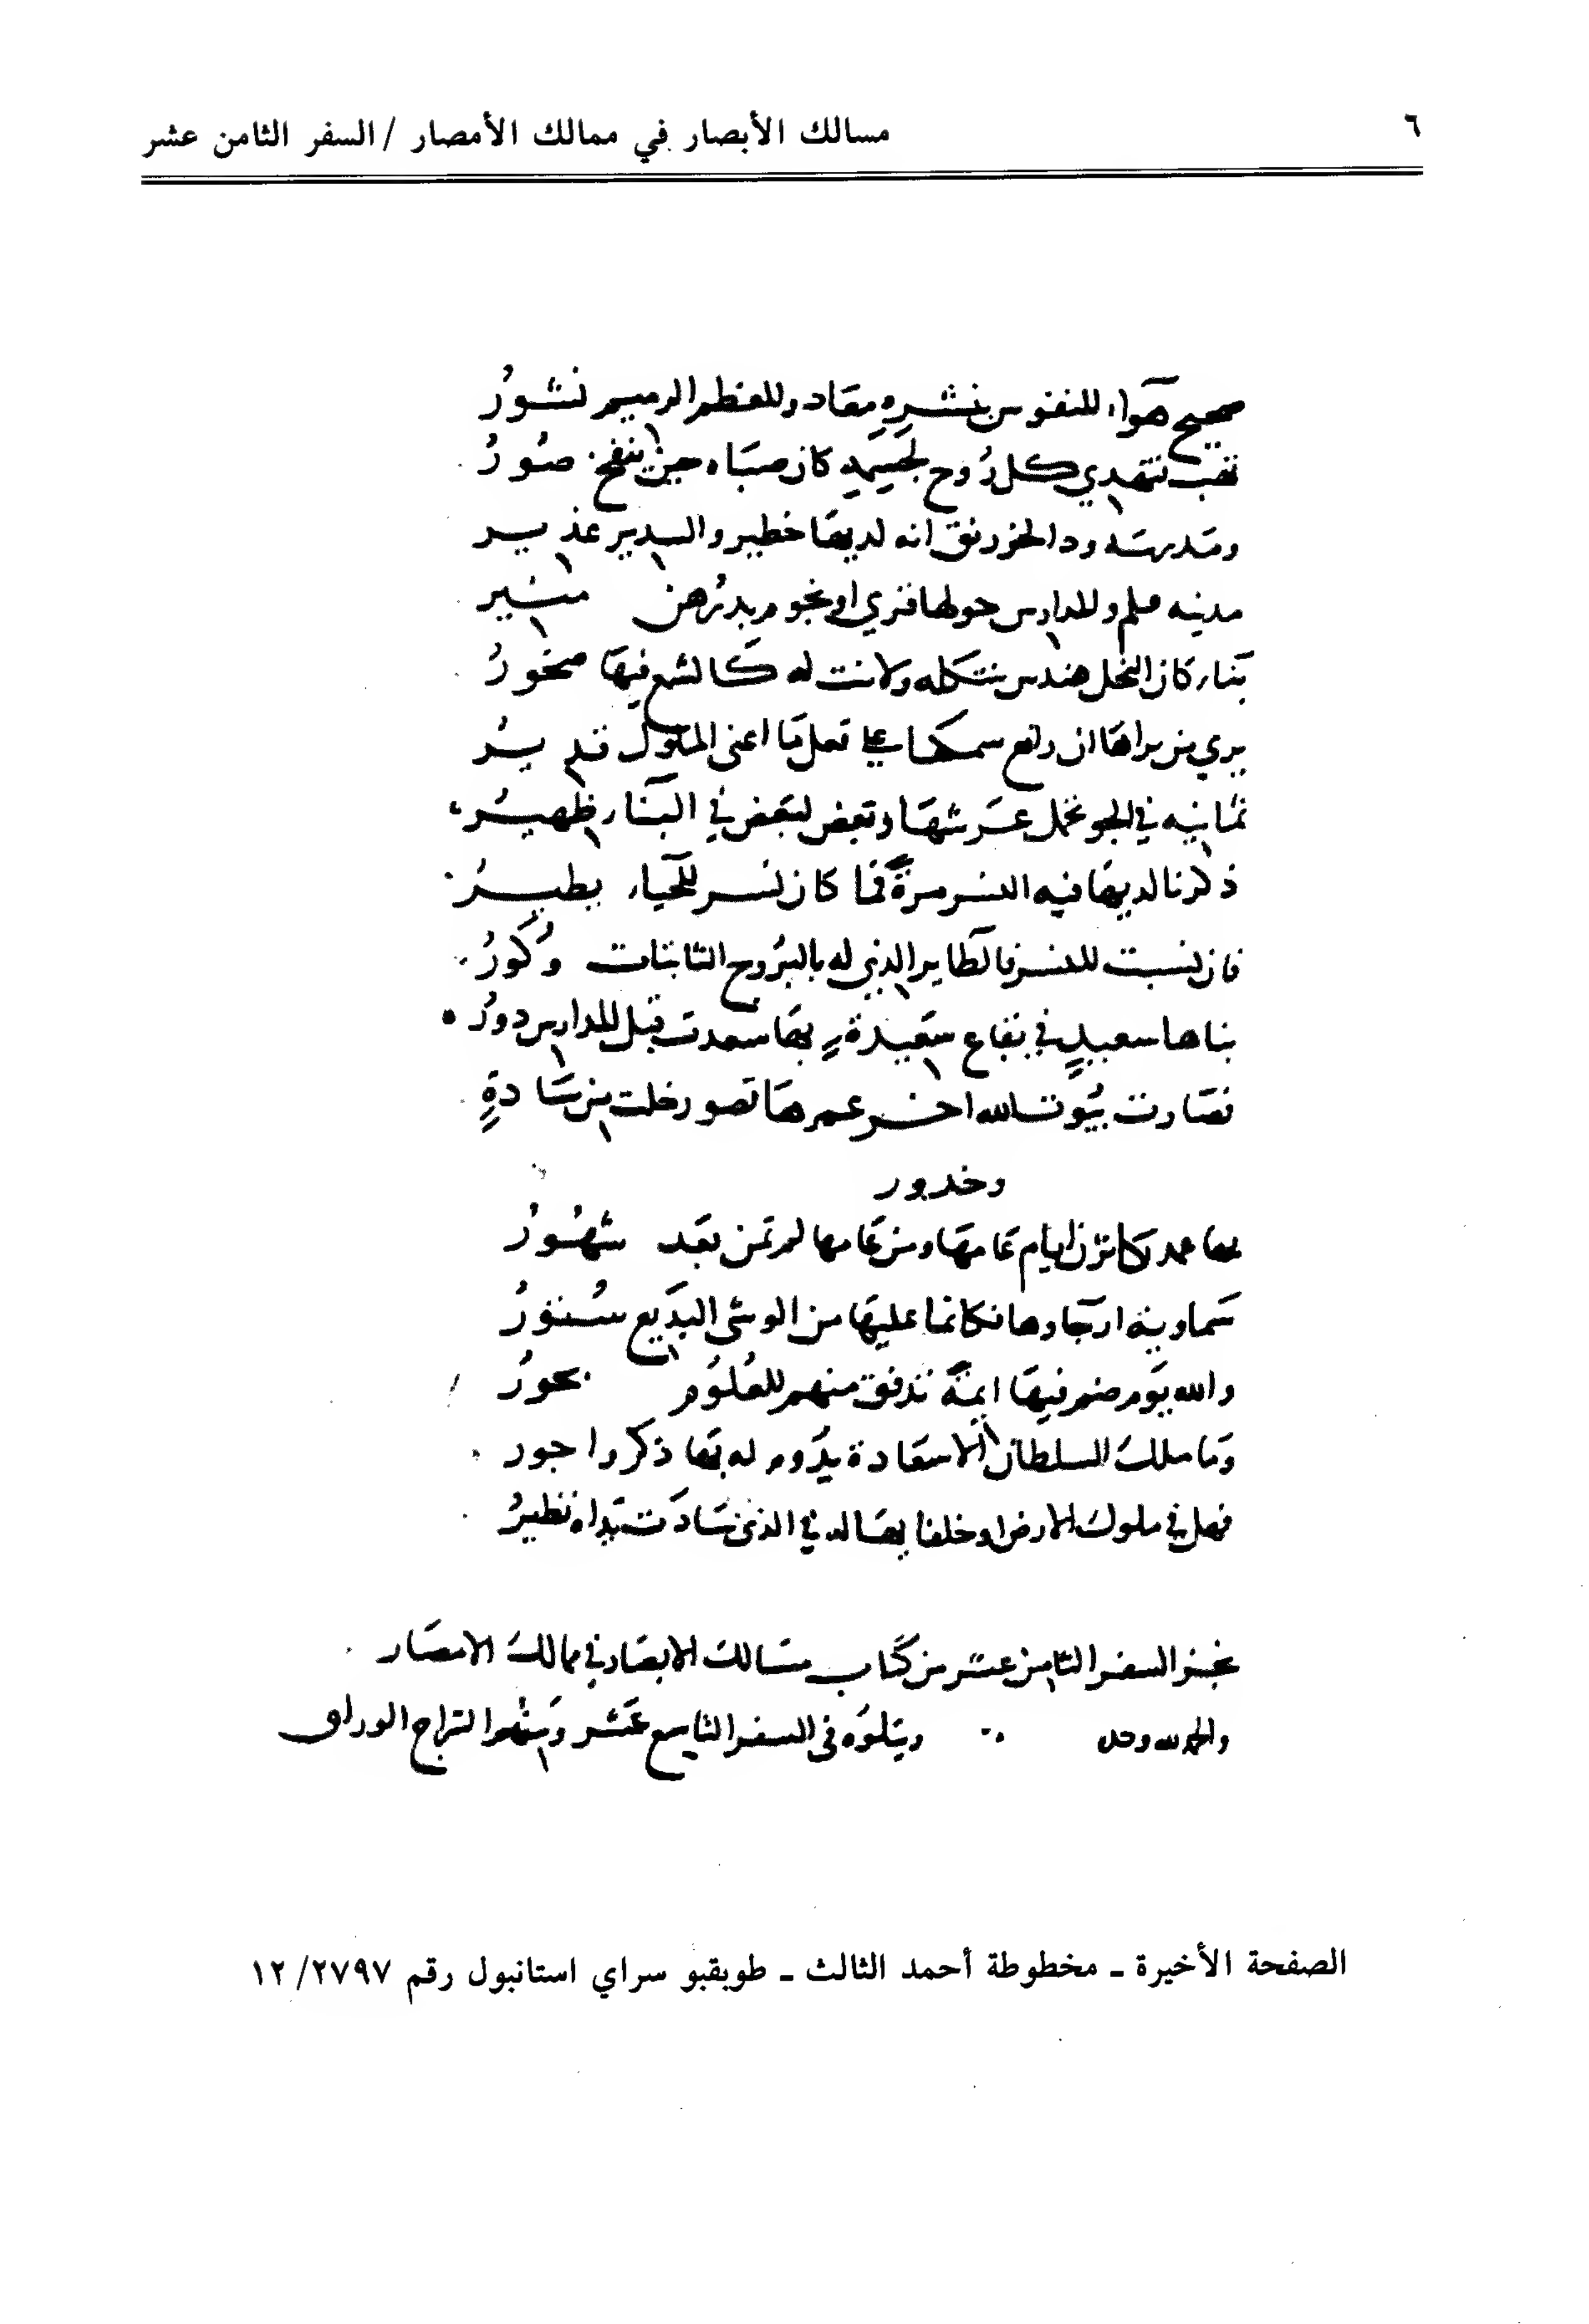 ٦
مسالك الأبصار في ممالك الأمصار /السفر الثامن عشر
صحيح هواء للنفوس بنشره معاد وللعظم الرميم نشور
تهب تهدي كل روح لجسمه كان صباه حين ينفخ صور
ومدرسه ود الخورنق انه لديها خطير والسدير غدير
مدينه علم والمدارس حولها قري او نجوم بدرهن منير
بناء كان النحل هندس شكله ولانت له كالشمع فيها صخور
يري من يراها ان رافع سمكها علي فعل ما اعني الملوك قدير
ثمانيه في الجو تحمل عرشها وبعض لبعض في البناء ظهير
ذكرنا لديها قبه النسر مرة فما كاد نسر للحياء يطير
فان نسبت للنسر فالطاير الذي له بالبروج الثابتات وكور
بناها سعيد في بقاع سعيدة بها سعدت قبل المدارس دور
فصارت بيوت الله اخر عمرها قصور خلت من سادة
وخدور
بها عمد كاثرن ايام عامها ومن عامها لم تمن بعد شهور
سماوية ارجاوها فكانما عليها من الوشي البديع ستور
والله يوم ضم فيها ايمة تدفق منهم للعلوم بحور
وما ملك السلطان الا سعادة يدوم له بها ذكر واجور
فهل في ملوك الارض او خلفايها له في الذي شادت يداه نظير
نجز السفر الثامن عشر من كتاب مسالك الابصار في ممالك الامصار
والحمد لله وحده ويتلوه في السفر التاسع عشر ومنهم السراج الوراق
الصفحة الأخيرة ـ مخطوطة أحمد الثالث ـ طوبقبو سراي استانبول رقم ١٢/٢٧٩٧